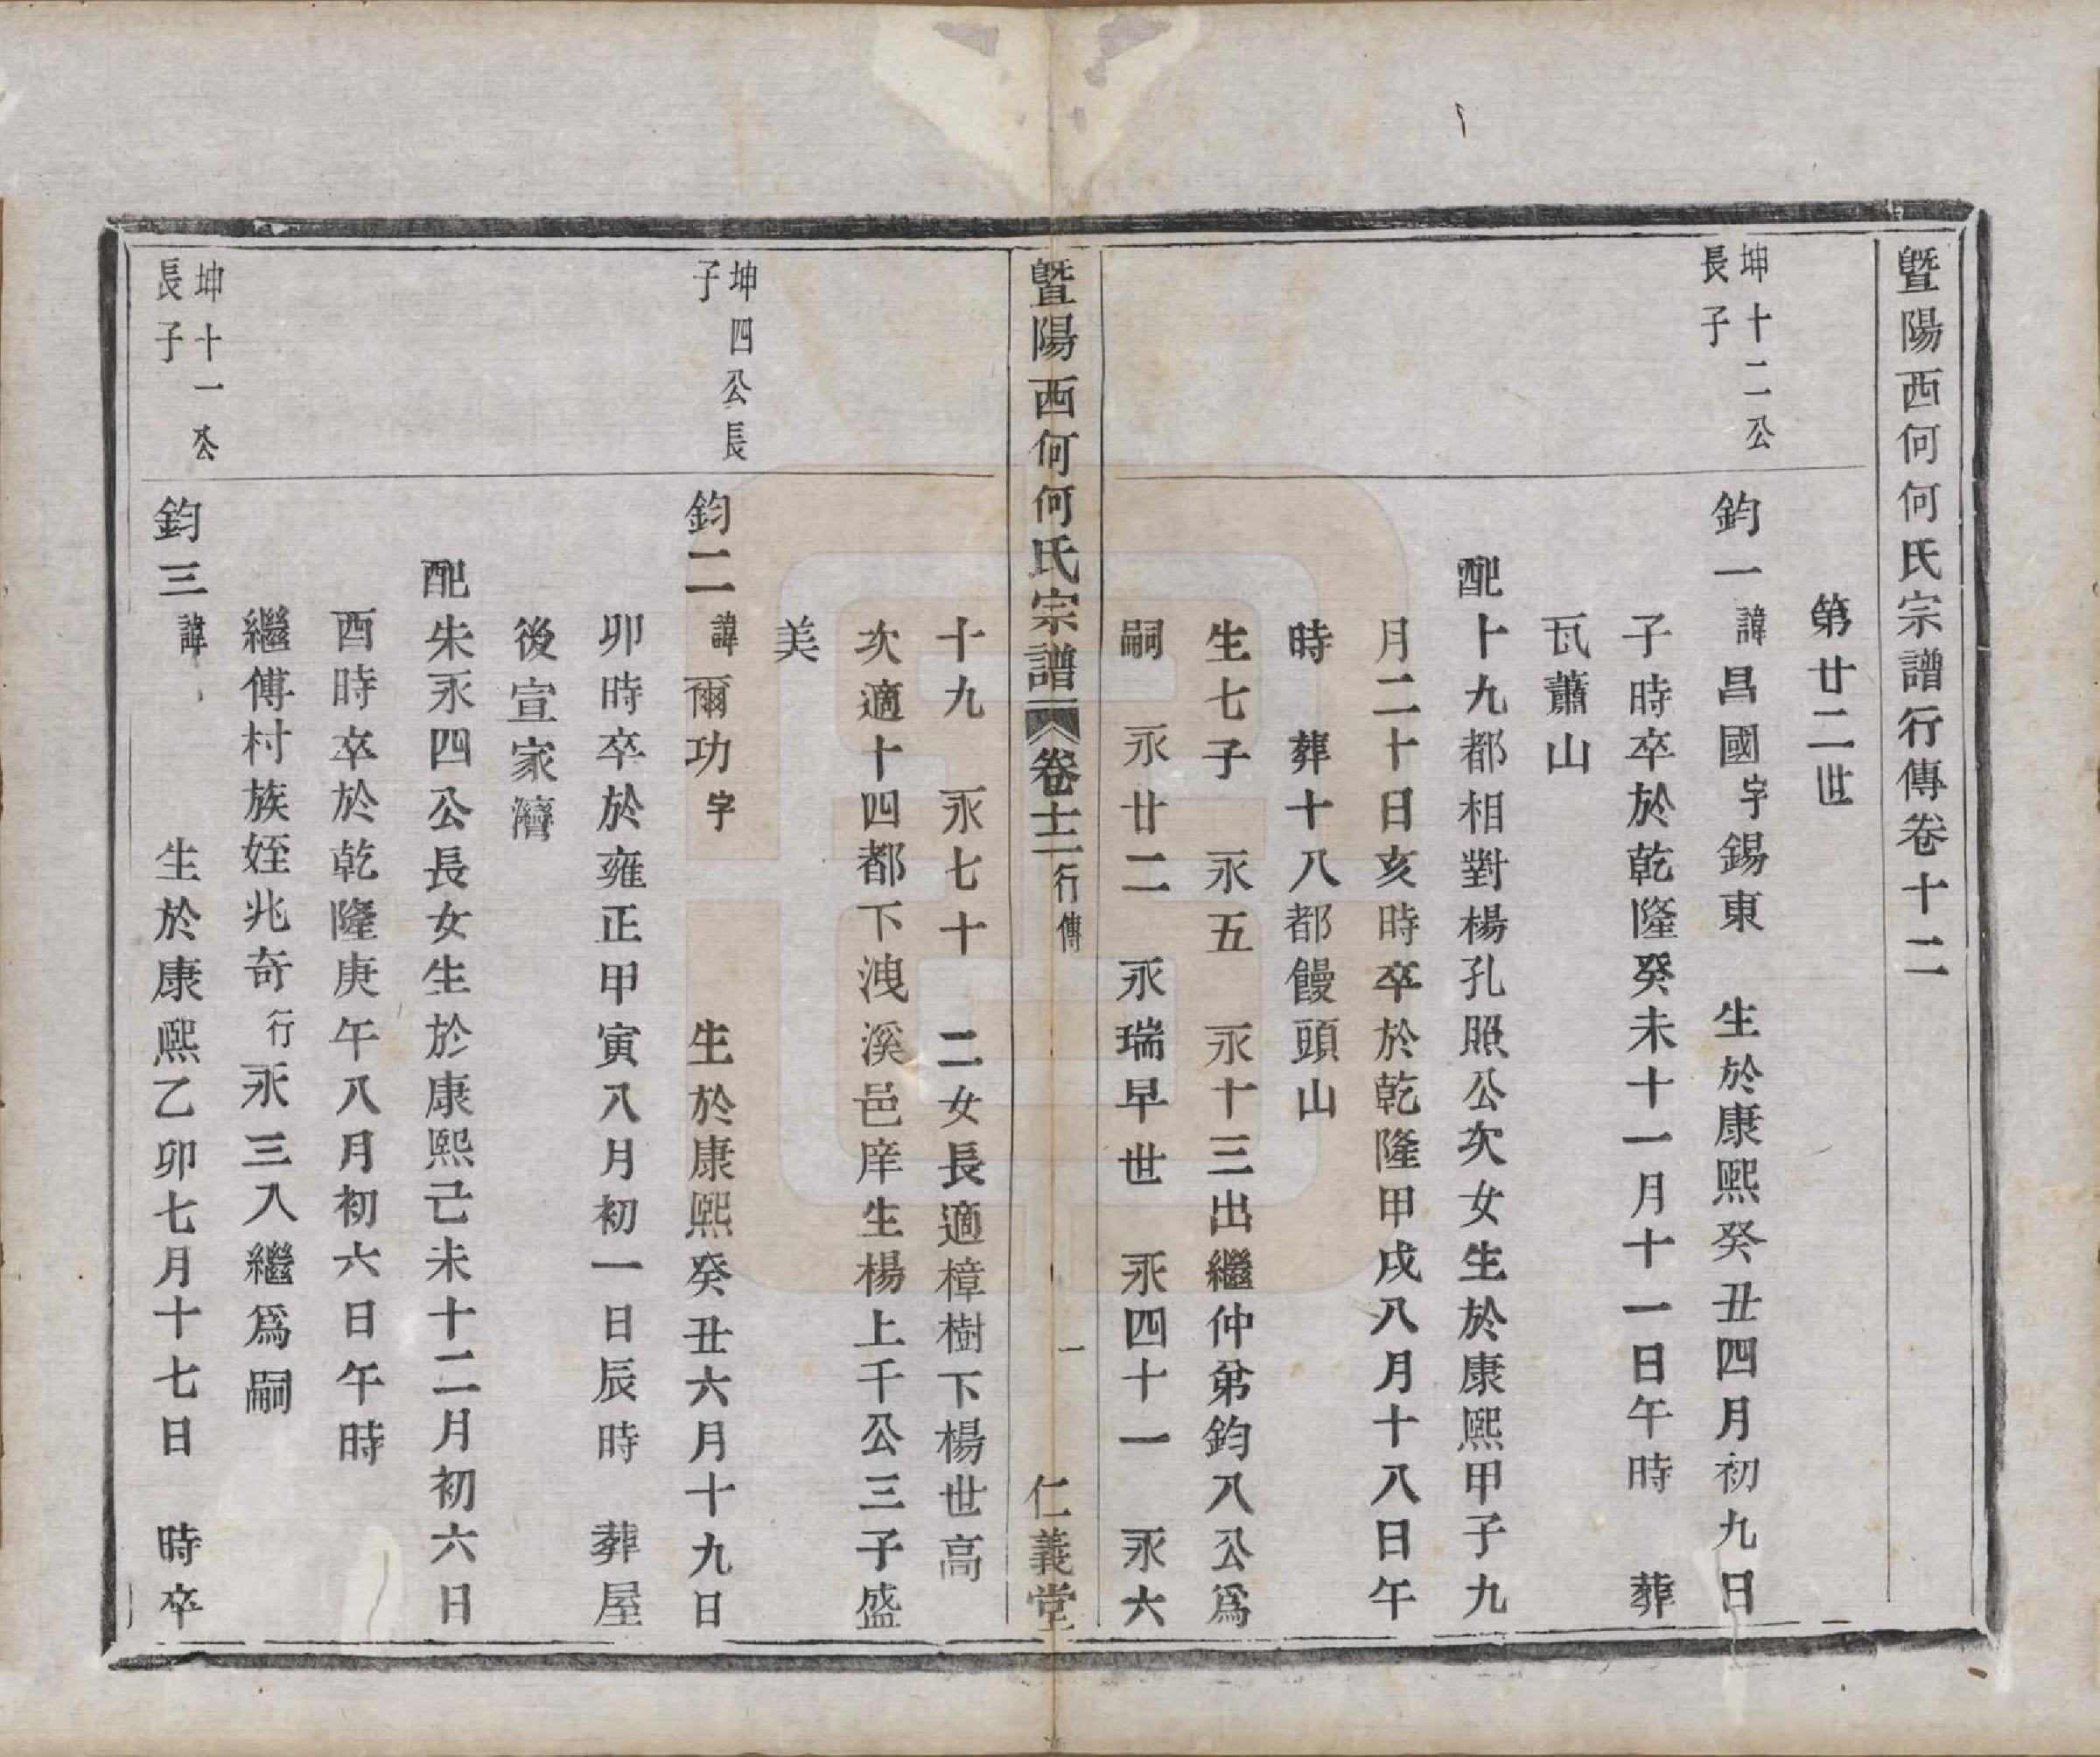 暨陽西何何氏宗譜行傳卷十二
第廿二世
坤十二公
長子
鈞一諱昌國字錫東　生於康熙癸丑四月初九日
子時卒於乾隆癸未十一月十一日午時　葬
瓦蕭山
配十九都相對楊孔照公次女生於康熙甲子九
月二十日亥時卒於乾隆甲戌八月十八日午
時　葬十八都饅頭山
生七子　永五　永十三出繼仲弟鈞八公爲
嗣　永廿二　永瑞早世　永四十一　永六
暨陽西何何氏宗譜　卷十二　行傳　一　仁義堂
十九　永七十　二女長適樟樹下楊世高
次適十四都下洩溪邑庠生楊上千公三子盛
美
坤四公長
子
鈞二諱爾功字　生於康熙癸丑六月十九日
卯時卒於雍正甲寅八月初一日辰時　葬屋
後宣家濳
配朱永四公長女生於康熙己未十二月初六日
酉時卒於乾隆庚午八月初六日午時
繼傅村族姪兆奇行永三入繼爲嗣
坤十一公
長子
鈞三諱　生於康熙乙卯七月十七日　時卒